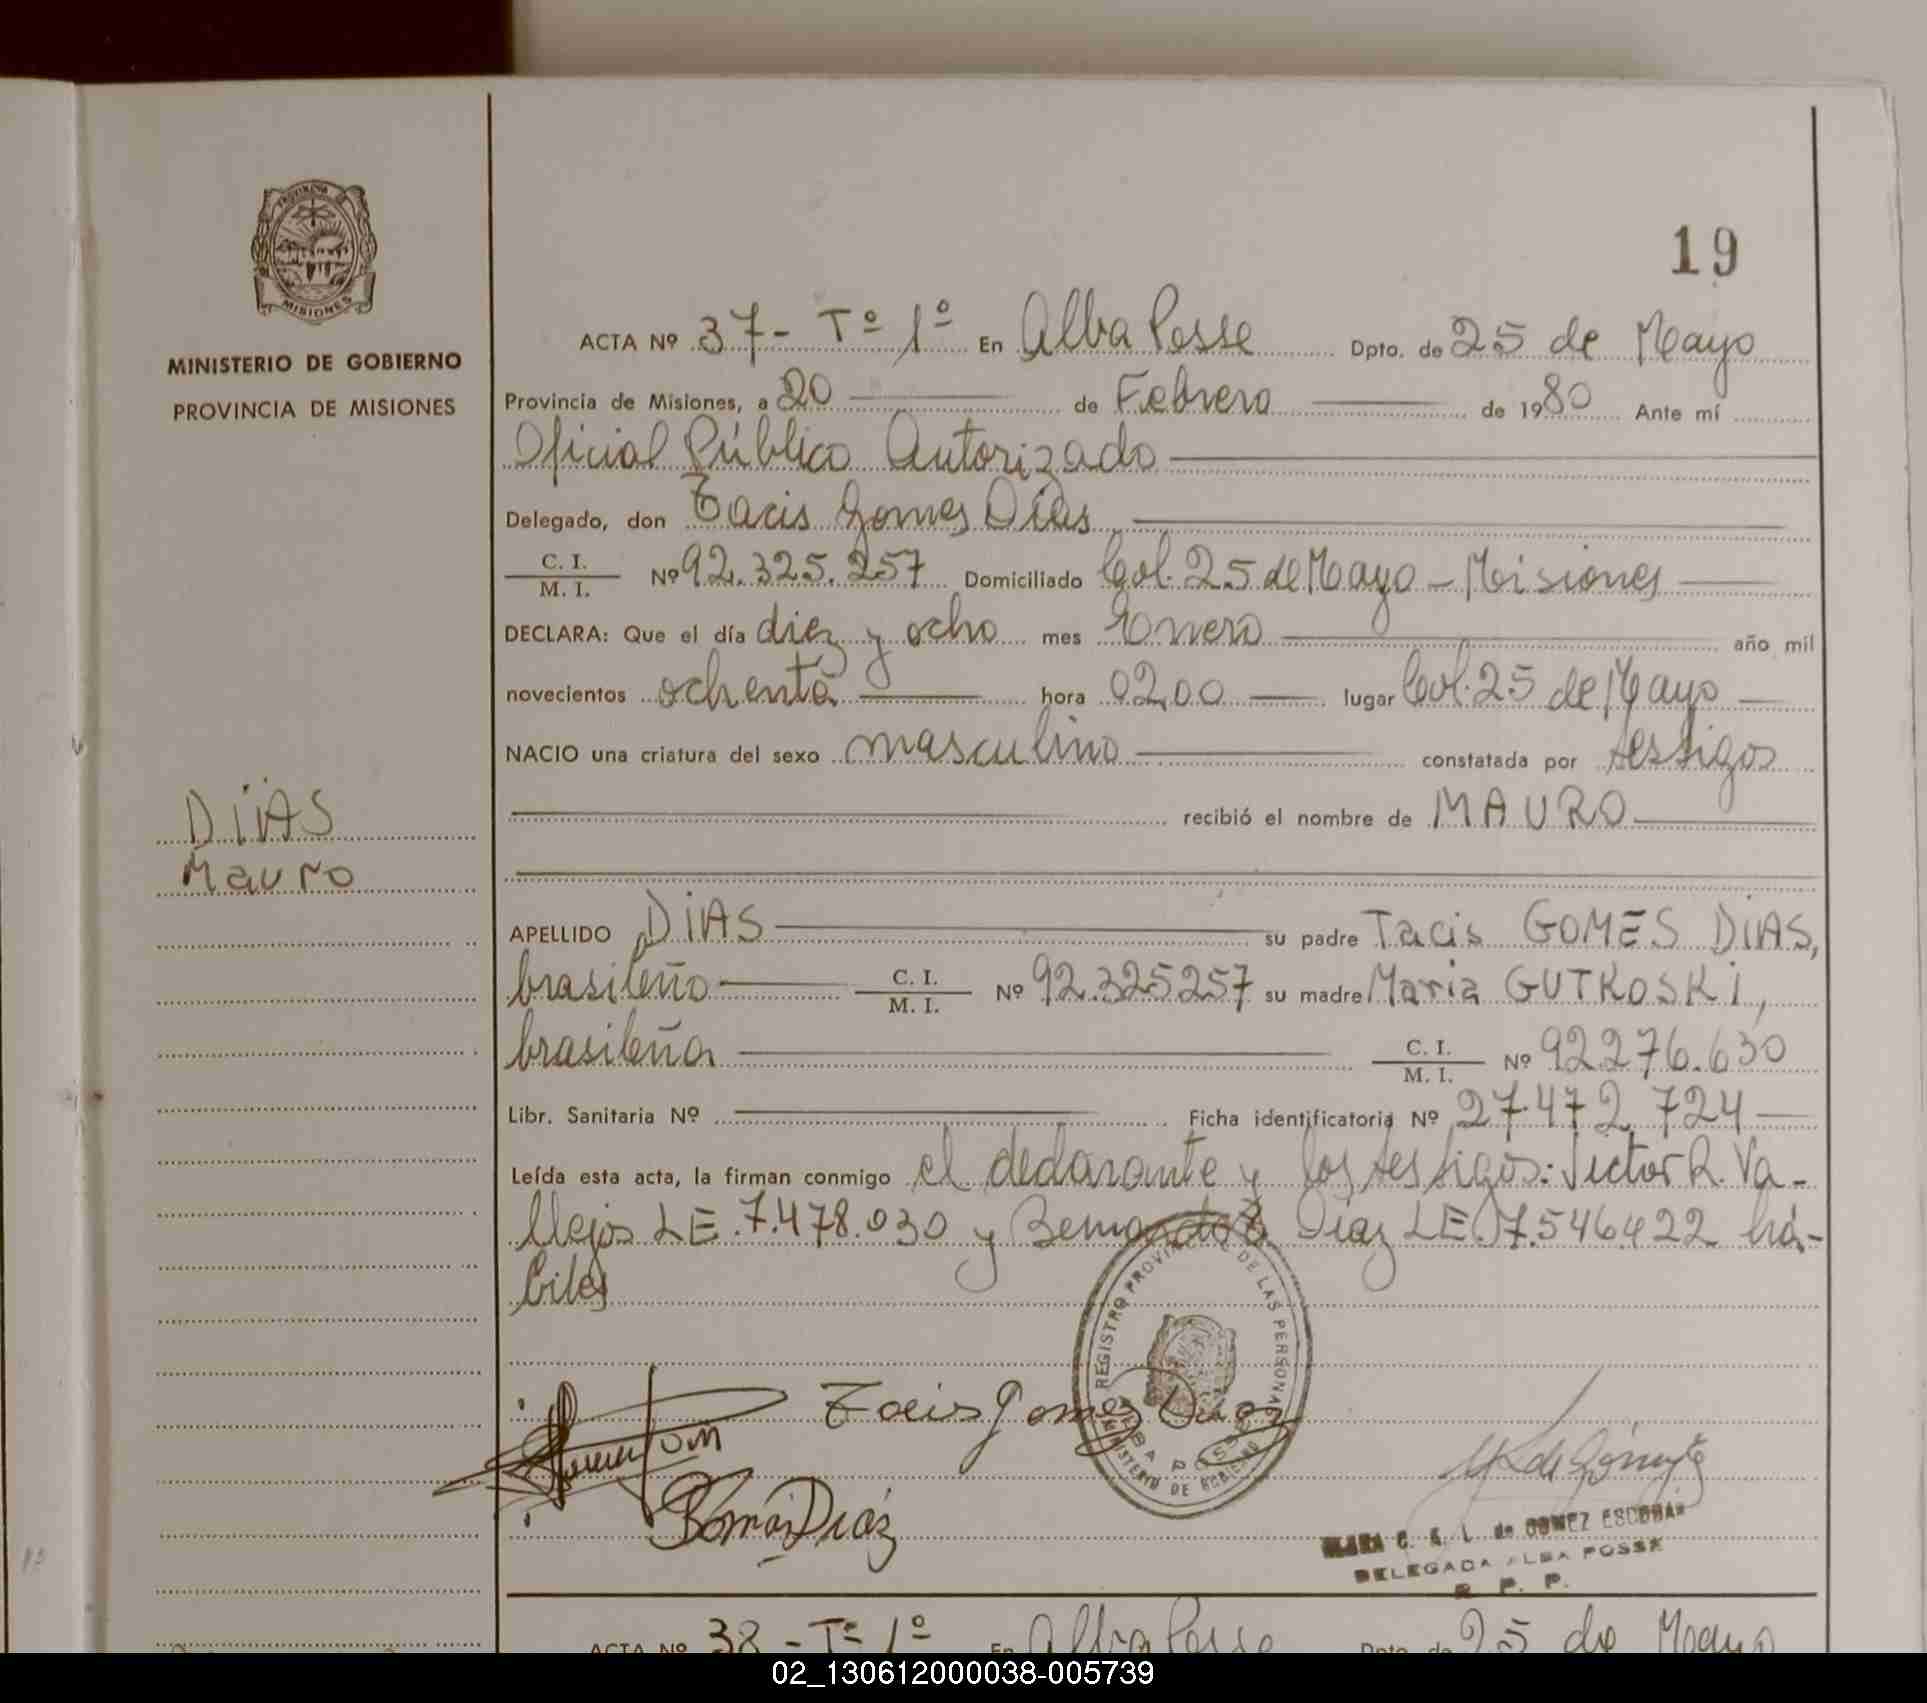 19
PROVINCIA
MISIONES
MINISTERIO DE GOBIERNO
PROVINCIA DE MISIONES
DIAS
Mauro
ACTA Nº 37 - Tº 1º En Alba Posse Dpto. de 25 de Mayo
Provincia de Misiones, a 20 de Febrero de 1980 Ante mí
Oficial Público Autorizado
Delegado, don Tacis Gomes Dias
C. I.
M. I. Nº 92.325.257 Domiciliado Col. 25 de Mayo - Misiones
DECLARA: Que el día diez y ocho mes Enero año mil
novecientos ochenta hora 02,00 lugar Col. 25 de Mayo
NACIO una criatura del sexo masculino constatada por testigos
recibió el nombre de MAURO
APELLIDO DIAS su padre Tacis GOMES DIAS,
brasileño C. I. M. I. Nº 92.325257 su madre Maria GUTKOSKI,
brasileña C. I. M. I. Nº 92276.630
Libr. Sanitaria Nº Ficha identificatoria Nº 27.472.724
Leída esta acta, la firman conmigo el declarante y los testigos: Victor R. Va-
llejos LE. 7.478.030 y Bernardo Diaz LE. 7.546422 há-
biles
REGISTRO PROVINCIAL DE LAS PERSONAS
ALBA POSSE
MINISTERIO DE GOBIERNO
Tacis Gomes Dias
Román Diáz
de GOMEZ ESCOBAR
DELEGADA ALBA POSSE
R. P. P.
ACTA Nº 38 - Tº 1º En Alba Posse Dpto. de 25 de Mayo
02_130612000038-005739